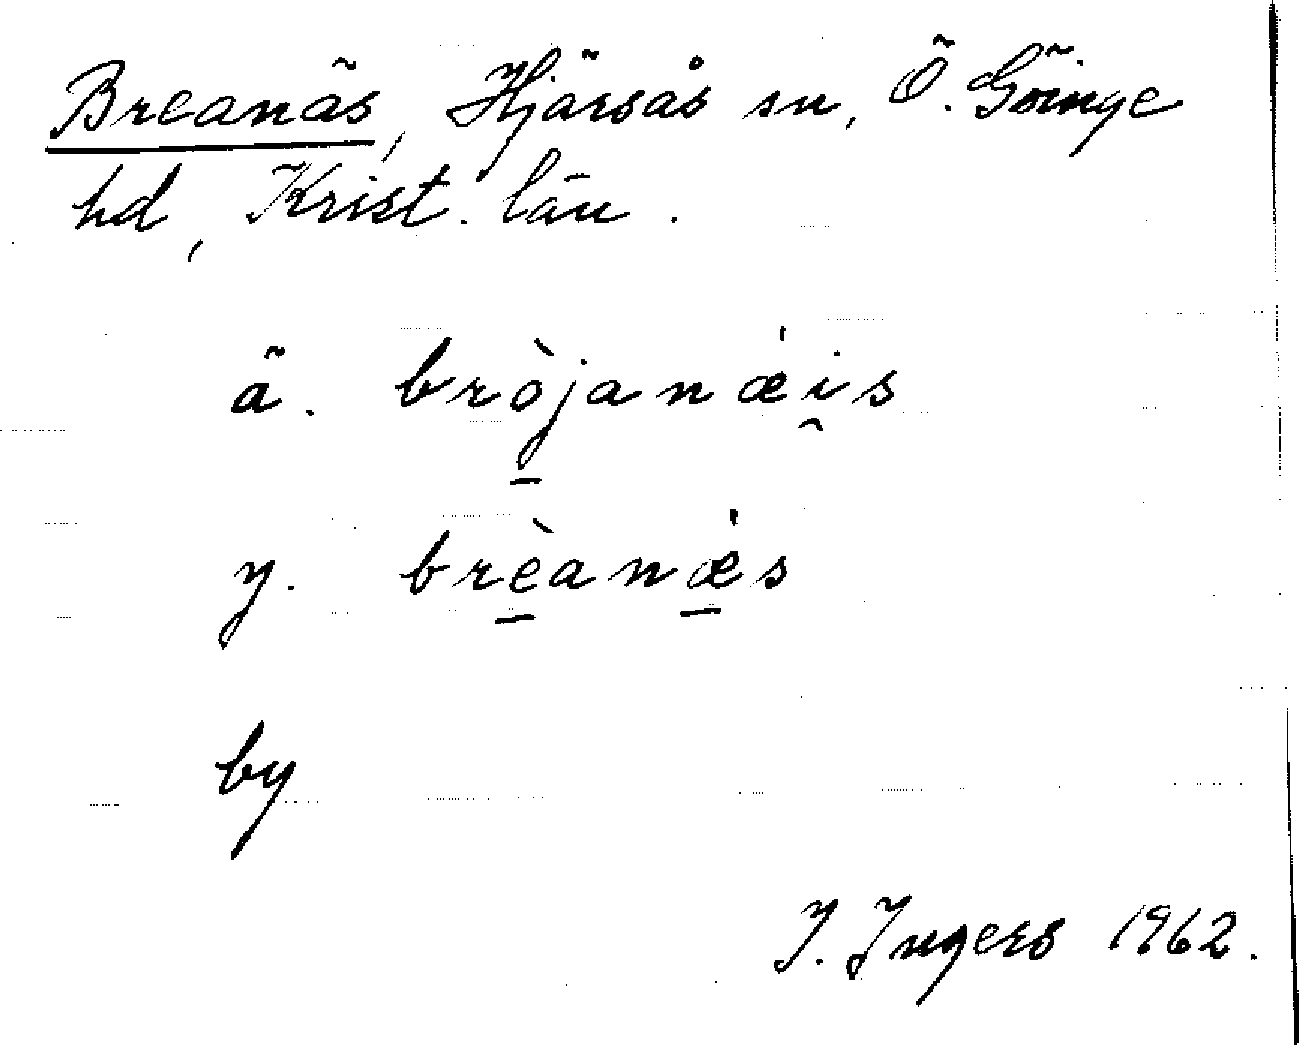 Breanäs, Hjärsås sn, Ö. Göinge
hd, Krist. län.
ä. bròjanǽi̯s
y. brè̱anǽ̱s
by
I. Ingers 1962.